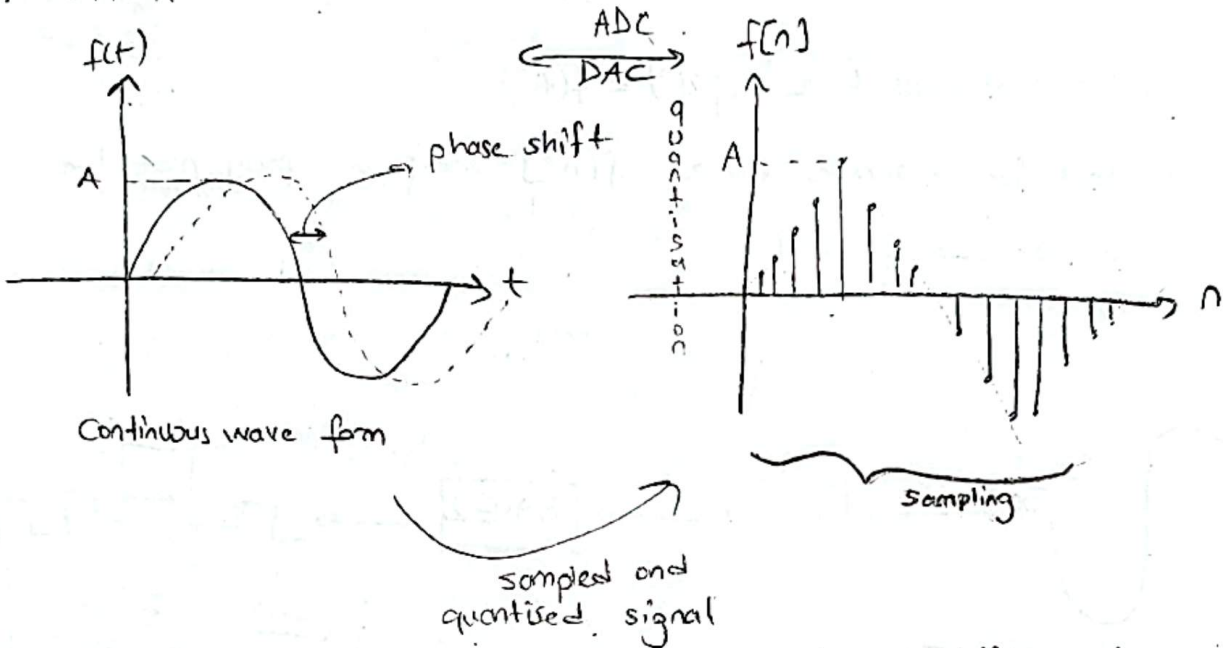 f(t)
A
phase shift
t
Continuous wave form
ADC
DAC
quantisation
f[n]
A
n
sampling
sampled and
quantised signal